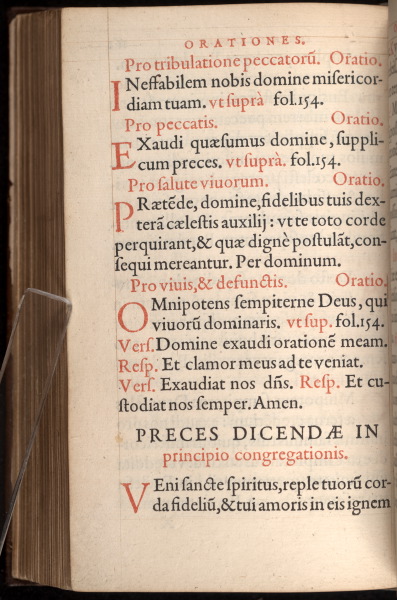 ORATIONES.
Pro tribulatione peccatorū. Oratio.
INeffabilem nobis domine misericor-
diam tuam. vt suprà fol.154.
Pro peccatis. Oratio.
EXaudi quæsumus domine, suppli-
cum preces. vt suprà. fol.154.
Pro salute viuorum. Oratio.
PRætēde, domine, fidelibus tuis dex-
terā cælestis auxilij: vt te toto corde
perquirant, & quæ dignè postulāt, con-
sequi mereantur. Per dominum.
Pro viuis, & defunctis. Oratio.
OMnipotens sempiterne Deus, qui
viuorū dominaris. vt sup. fol.154.
Vers. Domine exaudi orationē meam.
Resp. Et clamor meus ad te veniat.
Vers. Exaudiat nos dñs. Resp. Et cu-
stodiat nos semper. Amen.
PRECES DICENDÆ IN
principio congregationis.
VEni sancte spiritus, reple tuorū cor-
da fideliū, & tui amoris in eis ignem